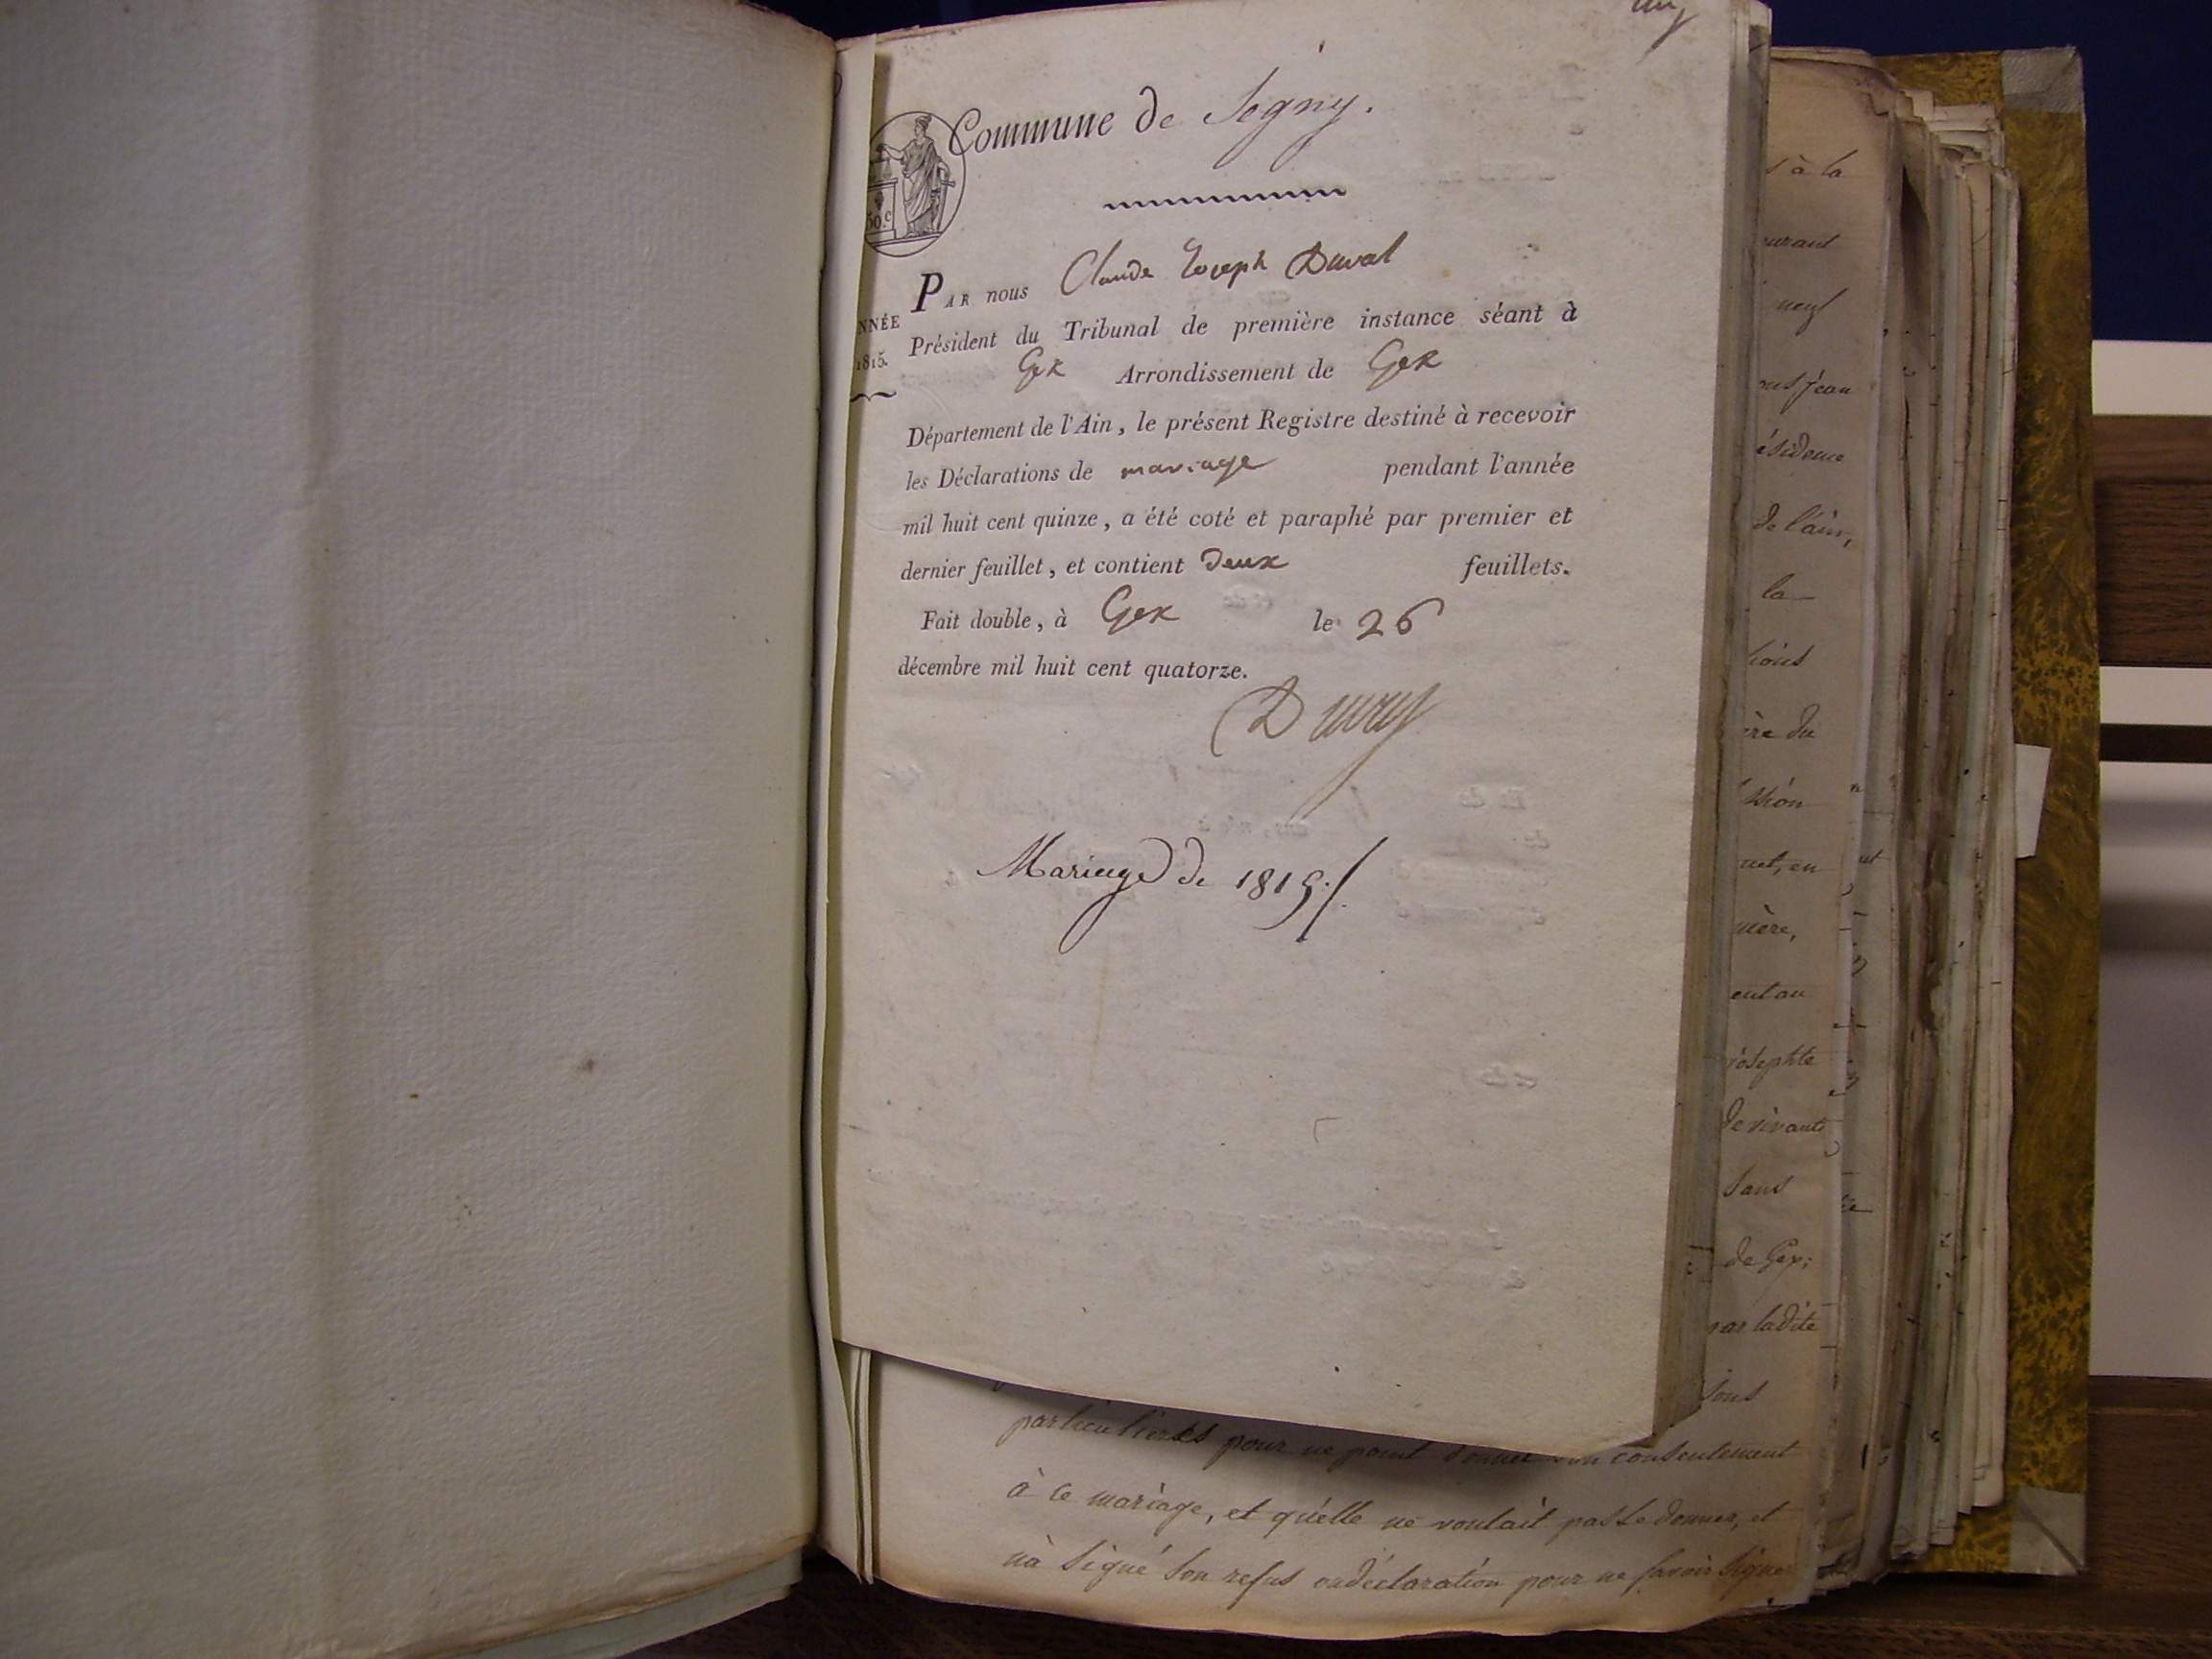 un
Commune de Segny.
50.c
NNÉE
1815.
PAR nous Claude Joseph Duval
Président du Tribunal de première instance séant à
Gex Arrondissement de Gex
Département de l'Ain, le présent Registre destiné à recevoir
les Déclarations de mariage pendant l'année
mil huit cent quinze, a été coté et paraphé par premier et
dernier feuillet, et contient Deux feuillets.
Fait double, à Gex le 26
décembre mil huit cent quatorze.
Duval
Mariage de 1815./.
s à la
neuf
Jean
ésidence
de l'ain,
la
ère du
net, en
mère,
ent au
josephte
de vivants
sans
de Gex;
par ladite
particulières pour ne point donner son consentement
à ce mariage, et qu'elle ne voulait pas le donner, et
n'a signé son refus ou déclaration pour ne savoir signer